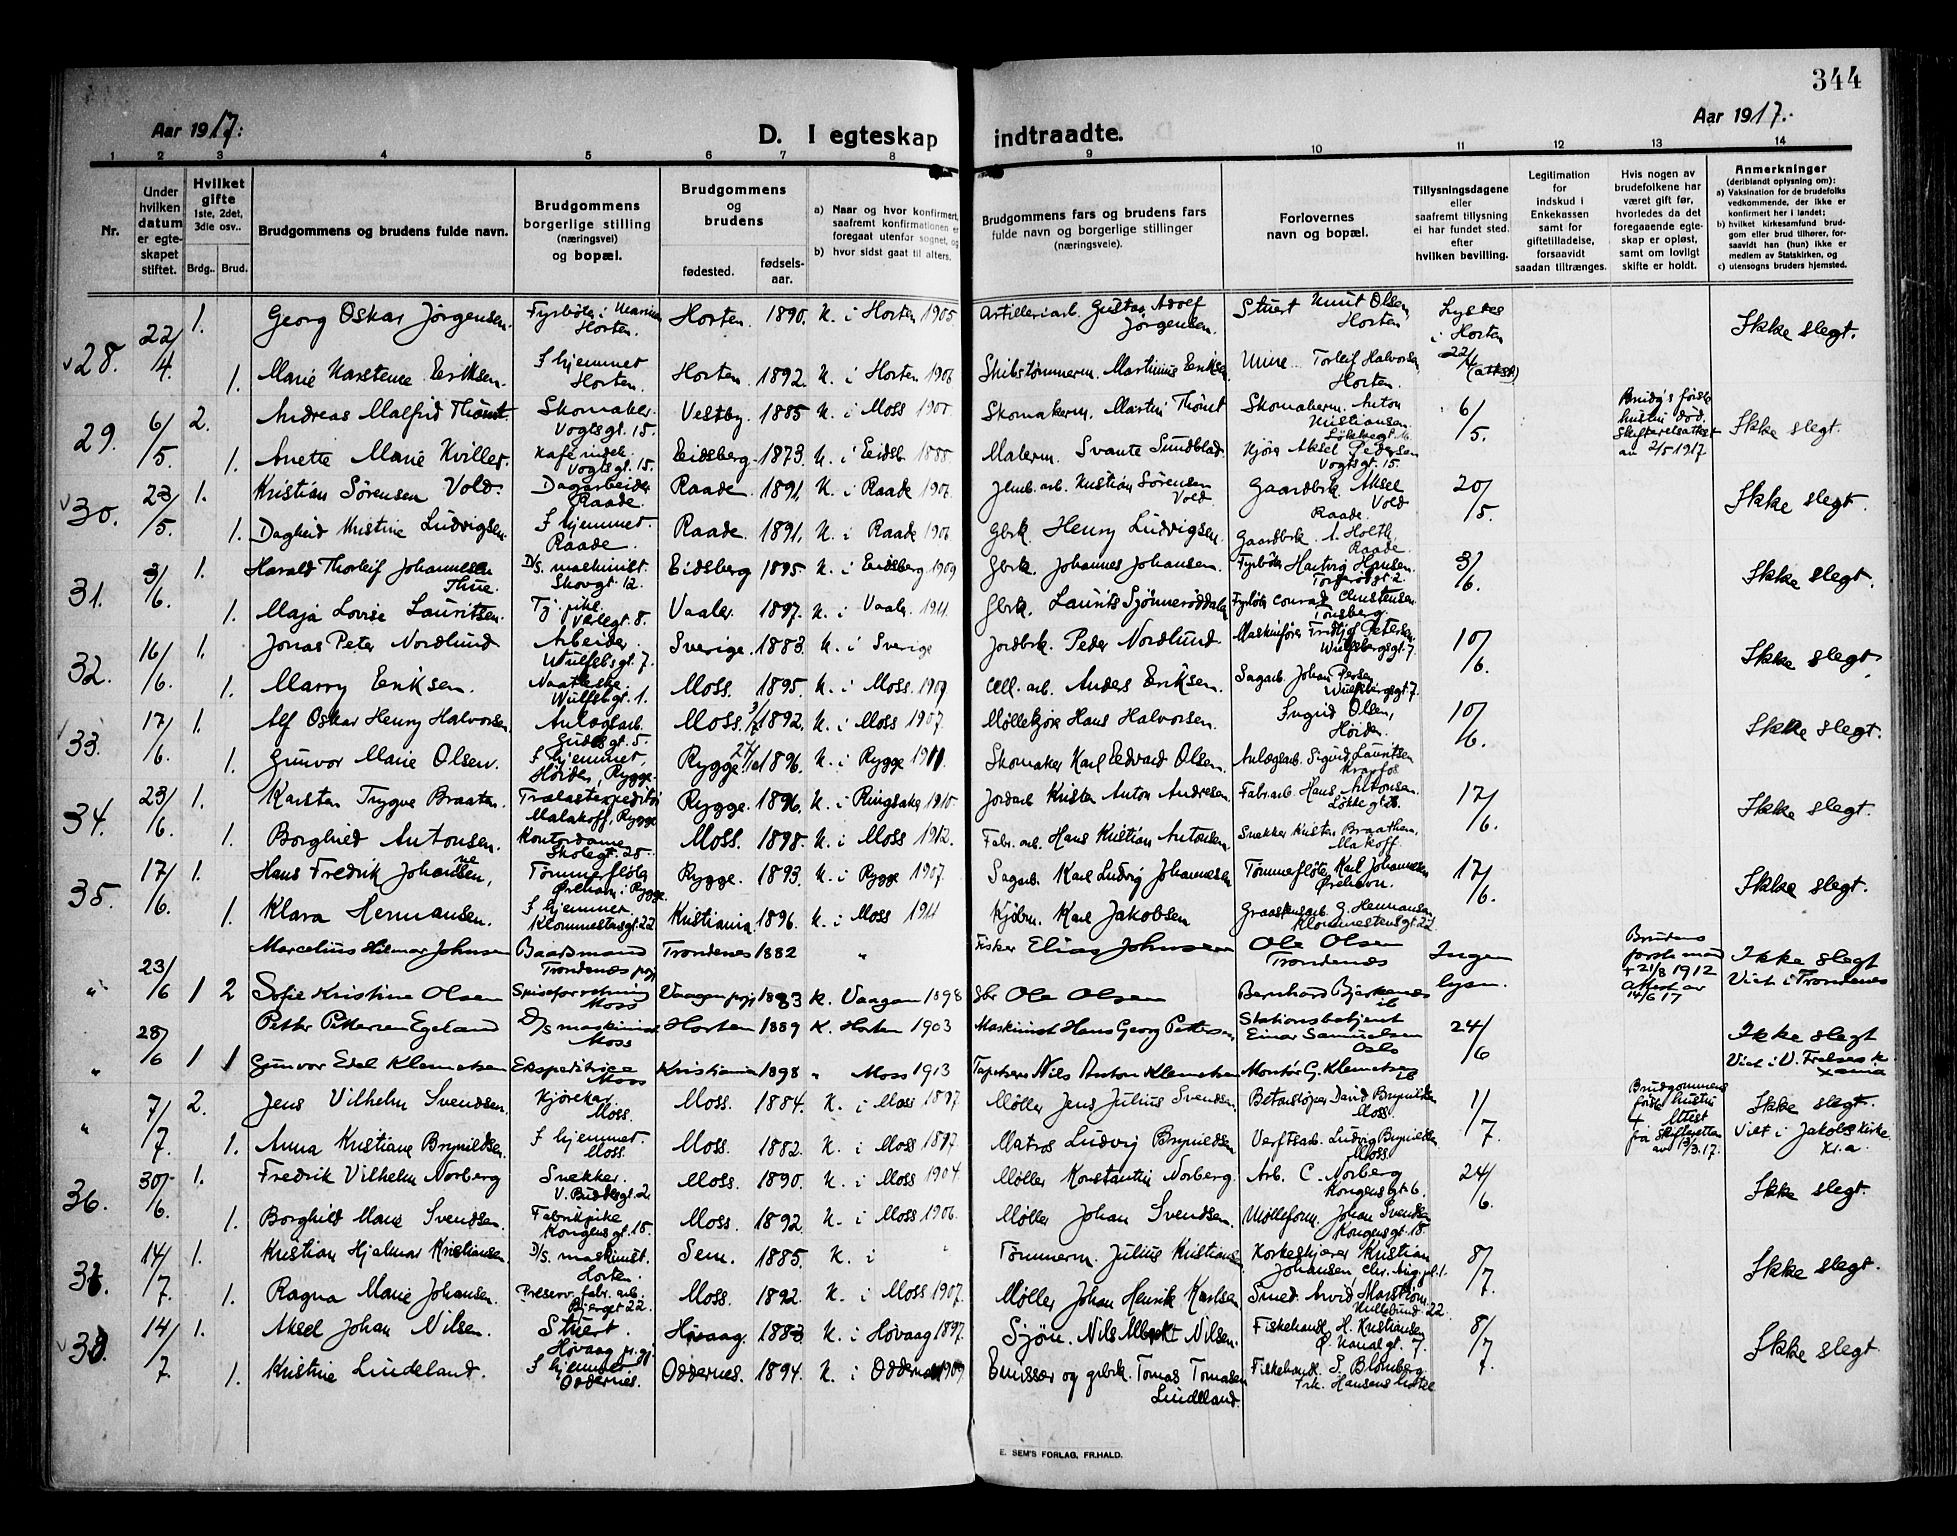 344
Aar 1917.
Aar 1917.
D. I egteskap indtraadte.
1 2 3 4 5 6 7 8 9 10 11 12 13 14
Nr.
Under hvilken datum er egteskapet stiftet.
Hvilket gifte 1ste, 2det, 3die osv..
Brdg.. Brud.
Brudgommens og brudens fulde navn.
Brudgommens borgerlige stilling (næringsvei) og bopæl.
Brudgommens og brudens
fødested. fødselsaar.
a) Naar og hvor konfirmert, saafremt konfirmationen er foregaat utenfor sognet, og
b) hvor sidst gaat til alters.
Brudgommens fars og brudens fars fulde navn og borgerlige stillinger (næringsveie).
Forlovernes navn og bopæl.
Tillysningsdagene eller saafremt tillysning ei har fundet sted. efter hvilken bevilling.
Legitimation for indskud i Enkekassen samt for giftetilladelse, forsaavidt saadan tiltrænges.
Hvis nogen av brudefolkene har været gift før, hvorledes da det foregaaende egteskap er opløst, samt om lovligt skifte er holdt.
Anmerkninger (deriblandt oplysning om): a) Vaksination for de brudefolks vedkommende, der ikke er konfirmert her i landet; b) hvilket kirkesamfund brudgom eller brud tilhører, forsaavidt han (hun) ikke er medlem av Statskirken, og c) utensogns bruders hjemsted.
28. 22/4. 1. Georg Oskar Jørgensen. Fyrbøter i Marinen Horten. Horten. 1890. K. i Horten 1905. Artilleriarb. Gustav Adolf Jørgensen. Stuert Knut Olsen Horten Lystes i Horten 22/4 (attest) Ikke slegt.
1. Marie Karstense Eriksen. I hjemmet Horten. Horten. 1892. K. i Horten 1906 Skibstømmerm. Martinius Eriksen Torleif Halvorsen, Horten.
29. 6/5. 2. Andreas Malfrid Thømt. Skomaker. Vogtsgt. 15. Vestby. 1885 K. i Moss Skomakerm. Martin Thømt Skomakerm. Anton Kristiansen 6/5. Brudg's første hustru død. Skifteretsattest av 2/5 1917 Ikke slegt.
1. Anette Marie Kviller. Kafé indeh. Vogtsgt. 15. Eidsberg. 1873. K. i Eidsb. 1888 Malerm. Svante Sundblad Aksel Pedersen Vogtsgt. 15.
30. 23/5. 1. Kristian Sørensen Vold. Dagarbeider Raade. Raade 1891. K. i Raade Jernb. arb. Kristian Sørensen Vold Gaardbrk. Aksel Vold Raade. 20/5. Ikke slegt.
1. Dagheid Kristine Ludvigsen. I hjemmet. Raade. Raade. 1891. K. i Raade 1906 Gbrk Henry Ludvigsen. Gaardbrk. A. Holth Raade.
31. 3/6. 1. Harald Thorleif Johannesen Thue. D/s. maskinist. Skovgt. 12. Eidsberg 1895. K. i Eidsberg 1909 Gbrk. Johannes Johansen. Fyrbøter Hartvig Hansen 3/6. Ikke slegt.
1. Maja Lovise Lauritsen. Tj. pike. Verlegt. 8. Vaaler. 1897. K. i Vaaler 1911 Gbrk. Laurits Fyrbøter Conrad Christensen Tønsberg.
32. 16/6. 1. Jonas Peter Nordlund Arbeider Wulfsbgt. 7. Sverige. 1883. K. i Sverige Jordbrk. Peder Nordlund Maskinfører Fridtjof Petersen Wulfsbergsgt. 7. 10/6. Ikke slegt.
1. Marry Eriksen. Wulfsbgt. 1. Moss. 1895. K. i Moss. 1909 Cell. arb. Anders Eriksen. Sagarb. Johan Persen Wulfsbergsgt. 7.
33. 17/6. 1. Alf Oskar Henry Halvorsen Anlægsarb. Gudesgt. 5. Moss. 3/7 1892. K. i Moss 1907. Møllekjører Hans Halvorsen. Ingrid Olsen, Høiden. 10/6. Ikke slegt.
1. Gunvor Marie Olsen. I hjemmet, Høiden, Rygge. Rygge. 1896. K. i Rygge 1911 Skomaker Karl Edvard Olsen. Anlægsarb. Sigurd Lauritsen Krapfos
34. 23/6. 1. Karsten Trygve Braaten. Trælastexpeditør Malakoff, Rygge Rygge. 1896. K. i Ringsaker 1910. Jordarb Kristen Anton Andresen. Fabr. arb. Hans Antonsen. 17/6. Ikke slegt.
1. Borghild Antonsen. Kontordame Skolegt. 25. Moss. 1898. K. i Moss 1912. Fabr. arb. Hans Kristian Antonsen Snekker Kristen Braathen. Malakoff.
35. 17/6. 1. Hans Fredrik Johannesen, Tømmerfløter Ørehavn i Rygge Rygge. 1893. K. i Rygge 1907. Sagarb. Karl Ludvig Johannesen Tømmerfløter Karl Johannesen Ørehavn. 17/6. Ikke slegt.
1. Klara Hermansen. I hjemmet. Klommestensgt. 22 Kristiania. 1896. K. i Moss 1911 Kjøbm. Karl Jakobsen G. Hermansen Klommestensgt. 22.
" 23/6 1 2 Marcelius Hilmar Johnsen Baadsmand Trondenes prgj Trondenes 1882 " Fisker Elias Johnsen Ole Olsen Trondenes Ingen lysn. Brudens første mand + 21/8 1912 Attest av 14/6 17 Ikke slegt Viet i Trondenes
Sofie Kristine Olsen Spiseforretning Moss Vaagan prgj 1883 K. Vaagan 1898 Gbr Ole Olsen Bernhard Bjerkenes ib
" 28/6 1 1 Petter Pettersen Egeland D/s maskinist Moss Horten 1889 K. Horten 1903 Maskinist Hans Georg Pettersen Stationsbetjent Einar Samuelsen Oslo 24/6 Ikke slegt Viet i V. Frelsers k. Xania
Gunvor Edel Klemetsen Ekspeditrice Moss Kristiania 1898 " Moss 1913 Tapetserer Nils Anton Klemetsen Montør G. Klemetsen ib
" 7/7 2. Jens Vilhelm Svendsen. Kjørekar Moss. Moss. 1884. K. i Moss 1897 Møller Jens Julius Svendsen. Betonstøper David Brynildsen Moss. 1/7. Brudgommens første hustru + Attest fra skifteretten av 13/3.17. Ikke slegt. Viet i Jakobs Kirke Kr.a.
1. Anna Kristiane Brynildsen. I hjemmet. Moss. Moss. 1882. K. i Moss 1897. Matros Ludvig Brynildsen Verftsarb. Ludvig Brynildsen Moss.
36. 30/6. 1. Fredrik Vilhelm Norberg Snekker. V. Buddesgt. 2. Moss. 1890. K. i Moss 1904. Møller Konstantin Norberg. Arb. C. Norberg Kongensgt 6. 24/6. Ikke slegt.
1. Borghild Marie Svendsen. Fabrikpike Kongensgt. 15. Moss. 1892 K. i Moss 1906. Møller Johan Svendsen. Mølleform. Johan Svendsen Kongensgt. 18.
37. 14/7. 1. Kristian Hjalmar Kristiansen. D/s. maskinist. Horten. Sem. 1885. K. i " Tømmerm. Julius Kristiansen Korkeskjærer Kristian Johansen Chr. Aug. pl. 1. 8/7. Ikke slegt.
1. Ragna Marie Johansen. Preserv. fabr. arb. Bjerget 22. Moss. 1892. K. i Moss 1907. Møller Johan Henrik Karlsen Smed Arvid Marstrøm. 22.
38. 14/7. 1. Aksel Johan Nilsen. Stuert. Høvaag pr.gj. Høvaag. 1883 K. i Høvaag 1897. Sjøm. Nils Albrekt Nilsen. Fiskehandl. H. Kristiansen Ø. Kanalgt. 7. 8/7. Ikke slegt.
1. Kristine Lindeland. I hjemmet Oddernes. Oddernes. 1894. K. i Oddernes 1909. Emissær og gbrk. Tomas Tomasen Lindeland. Fiskehandl. S. Blomberg Frk. Hansens hotel
E. SEM'S FORLAG, FR.HALD.